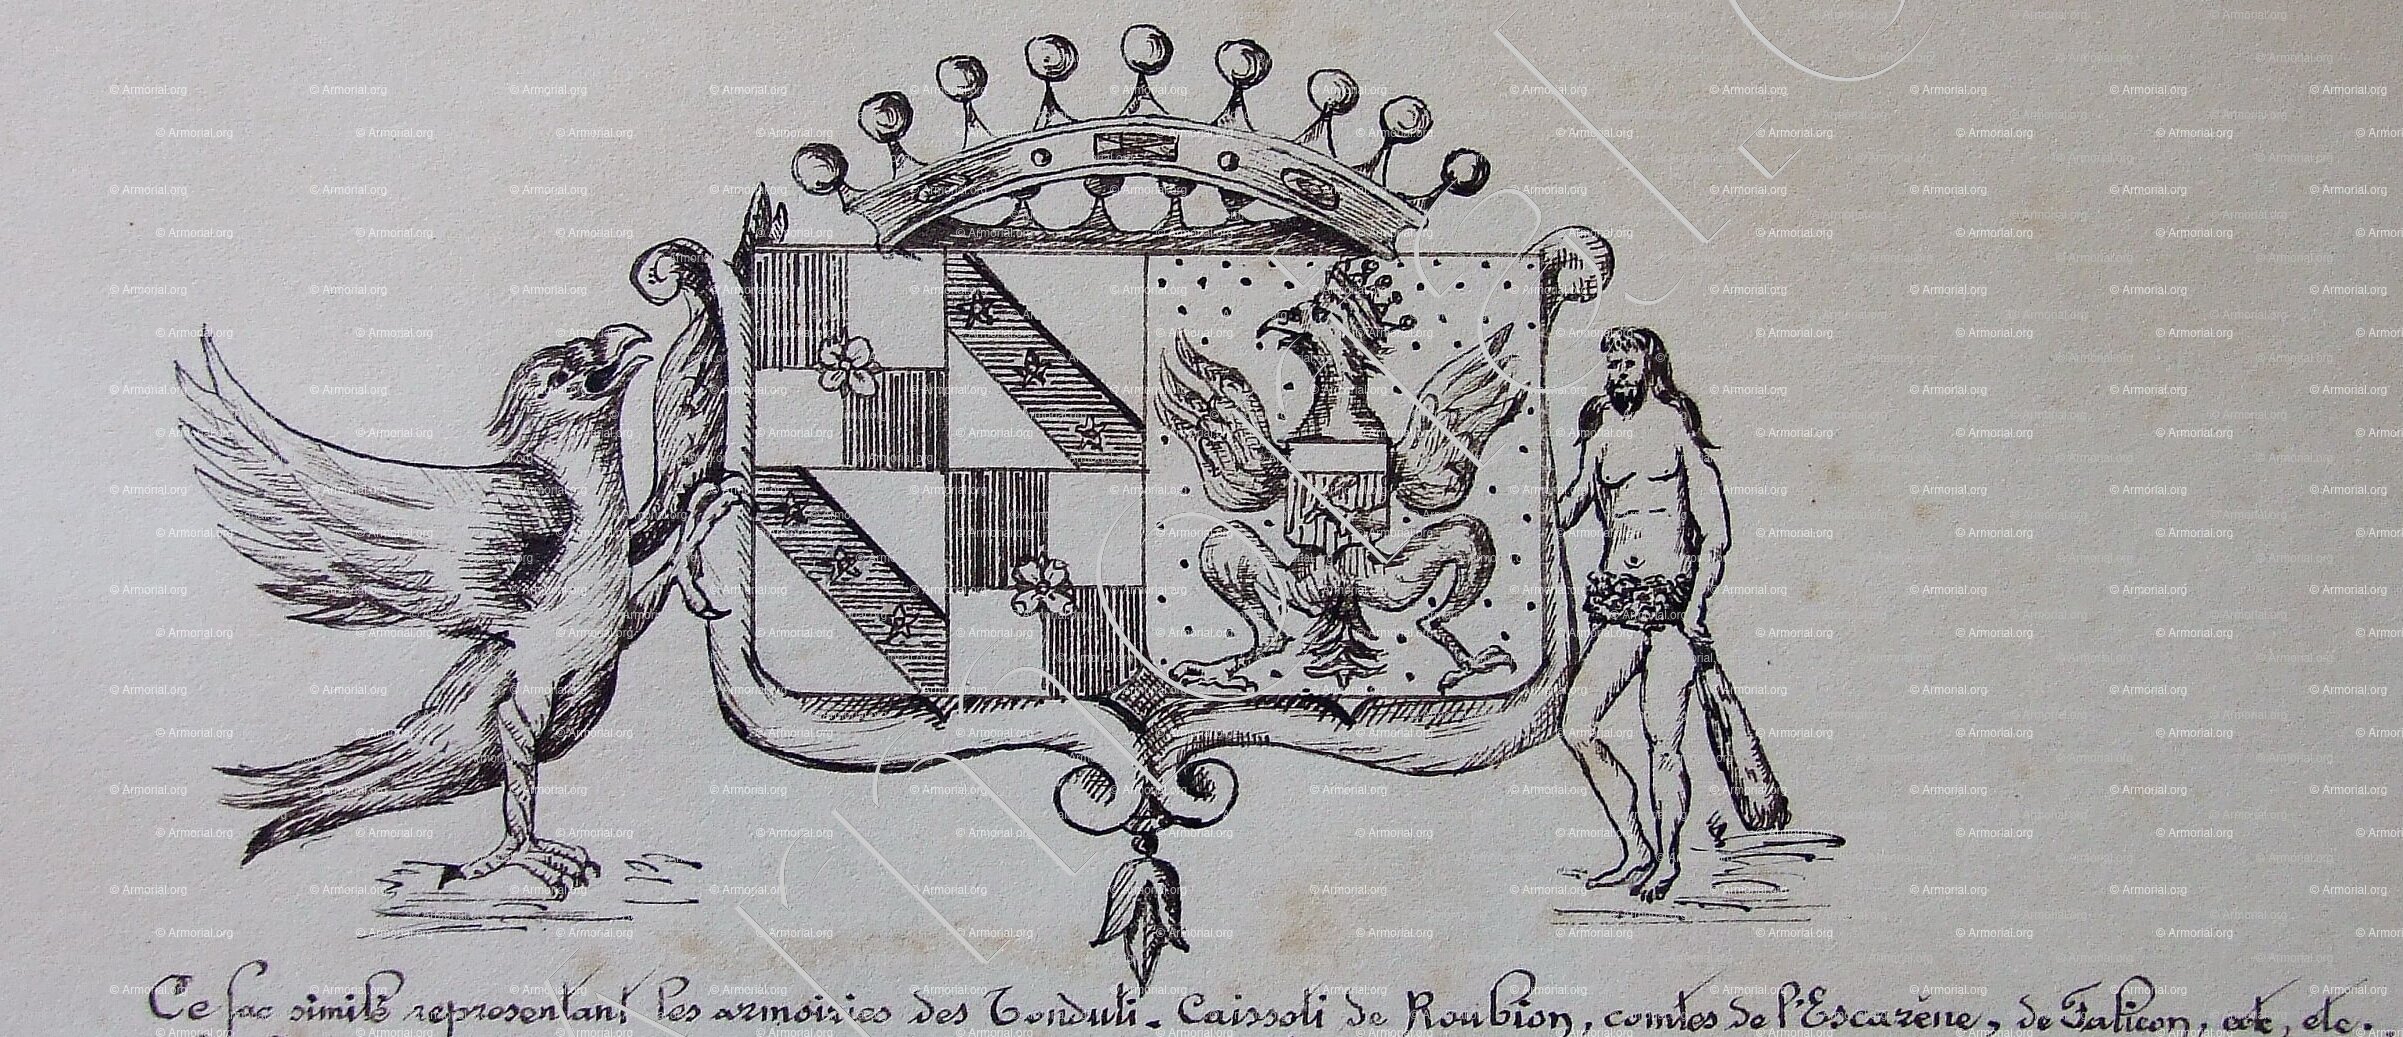 © Armorial.org
Ce fac simile representant les armoiries des Tonduti - Caissoti de Roubion, comtes de l'Escarène, de Falicon, etc, etc.